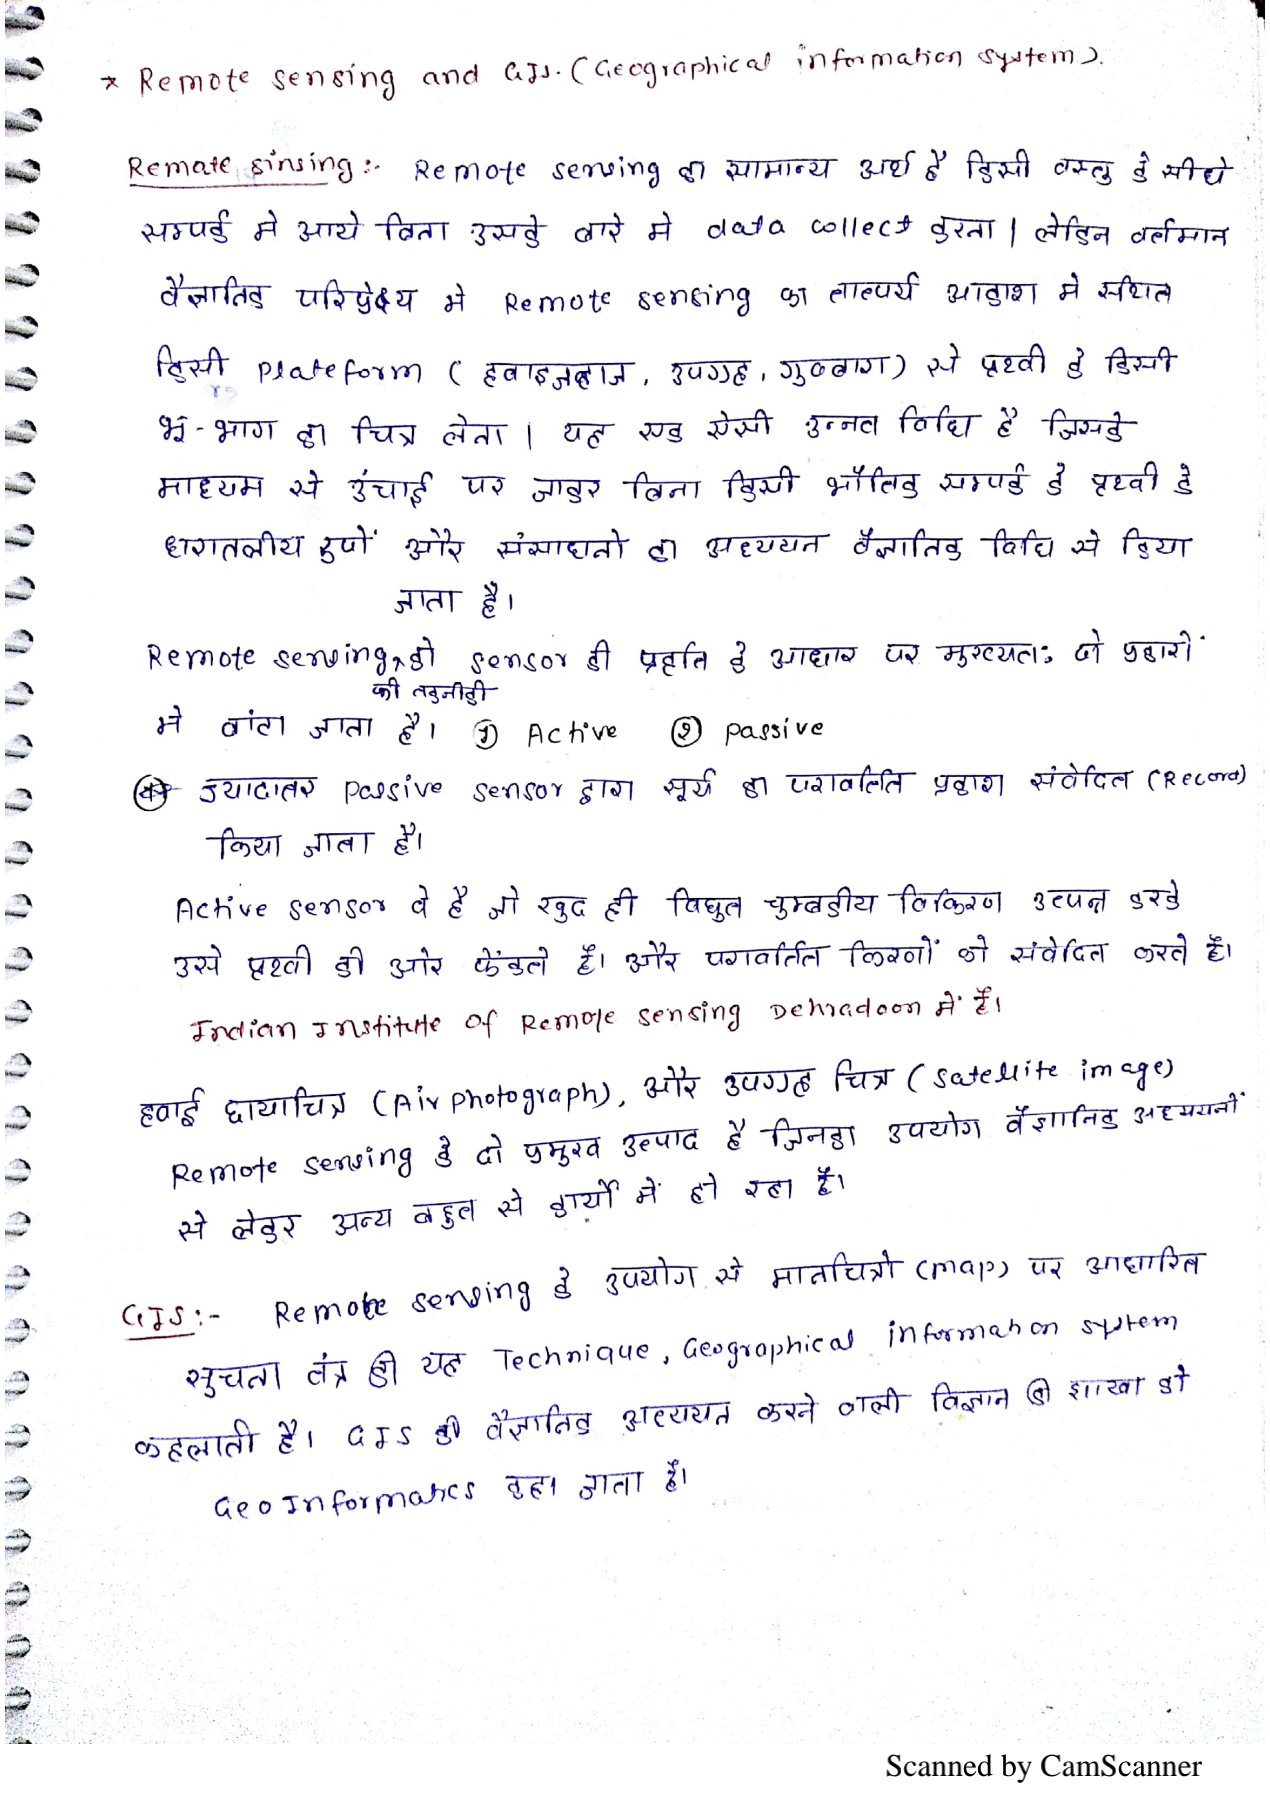 * Remote sensing and GIS. (Geographical information system).
Remate sinsing :- Remote sensing का सामान्य अर्थ है किसी वस्तु के सीधे
सम्पर्क मे आये बिना उसके बारे मे data collect करना | लेकिन वर्तमान
वैज्ञानिक परिप्रेक्ष्य मे Remote sensing का तात्पर्य आकाश मे स्थित
किसी Plateform ( हवाइजहाज, उपग्रह, गुब्बारा) से पृथ्वी के किसी
भू-भाग का चित्र लेना | यह एक ऐसी उन्नत विधि है जिसके
माध्यम से उंचाई पर जाकर बिना किसी भौतिक सम्पर्क के पृथ्वी के
धरातलीय रुपों और संसाधनो का अध्ययन वैज्ञानिक विधि से किया
जाता है।
Remote sensing को sensor की प्रकृति के आधार पर मुख्यतः दो प्रकारों
की तकनीकी
मे बांटा जाता है। ① Active ② passive
** ज्यादातर passive sensor द्वारा सूर्य का परावर्तित प्रकाश संवेदित (Record)
किया जाता है।
Active sensor वे है जो खुद ही विधुत चुम्बकीय विकिरण उत्पन्न करके
उसे पृथ्वी की ओर फेंकते हैं। और परावर्तित किरणों को संवेदित करते है।
Indian Institute of Remote sensing Dehradoon में हैं।
हवाई छायाचित्र (Air photograph), और उपग्रह चित्र (satellite image)
Remote sensing के दो प्रमुख उत्पाद है जिनका उपयोग वैज्ञानिक अध्ययनों
से लेकर अन्य बहुत से कार्यों में हो रहा हैं।
GIS :- Remote sensing के उपयोग से मानचित्रो (map) पर आधारित
सुचना तंत्र की यह Technique, Geographical information system
कहलाती है। GIS की वैज्ञानिक अध्ययन करने वाली विज्ञान की शाखा को
GeoInformatics कहा जाता हैं।
Scanned by CamScanner